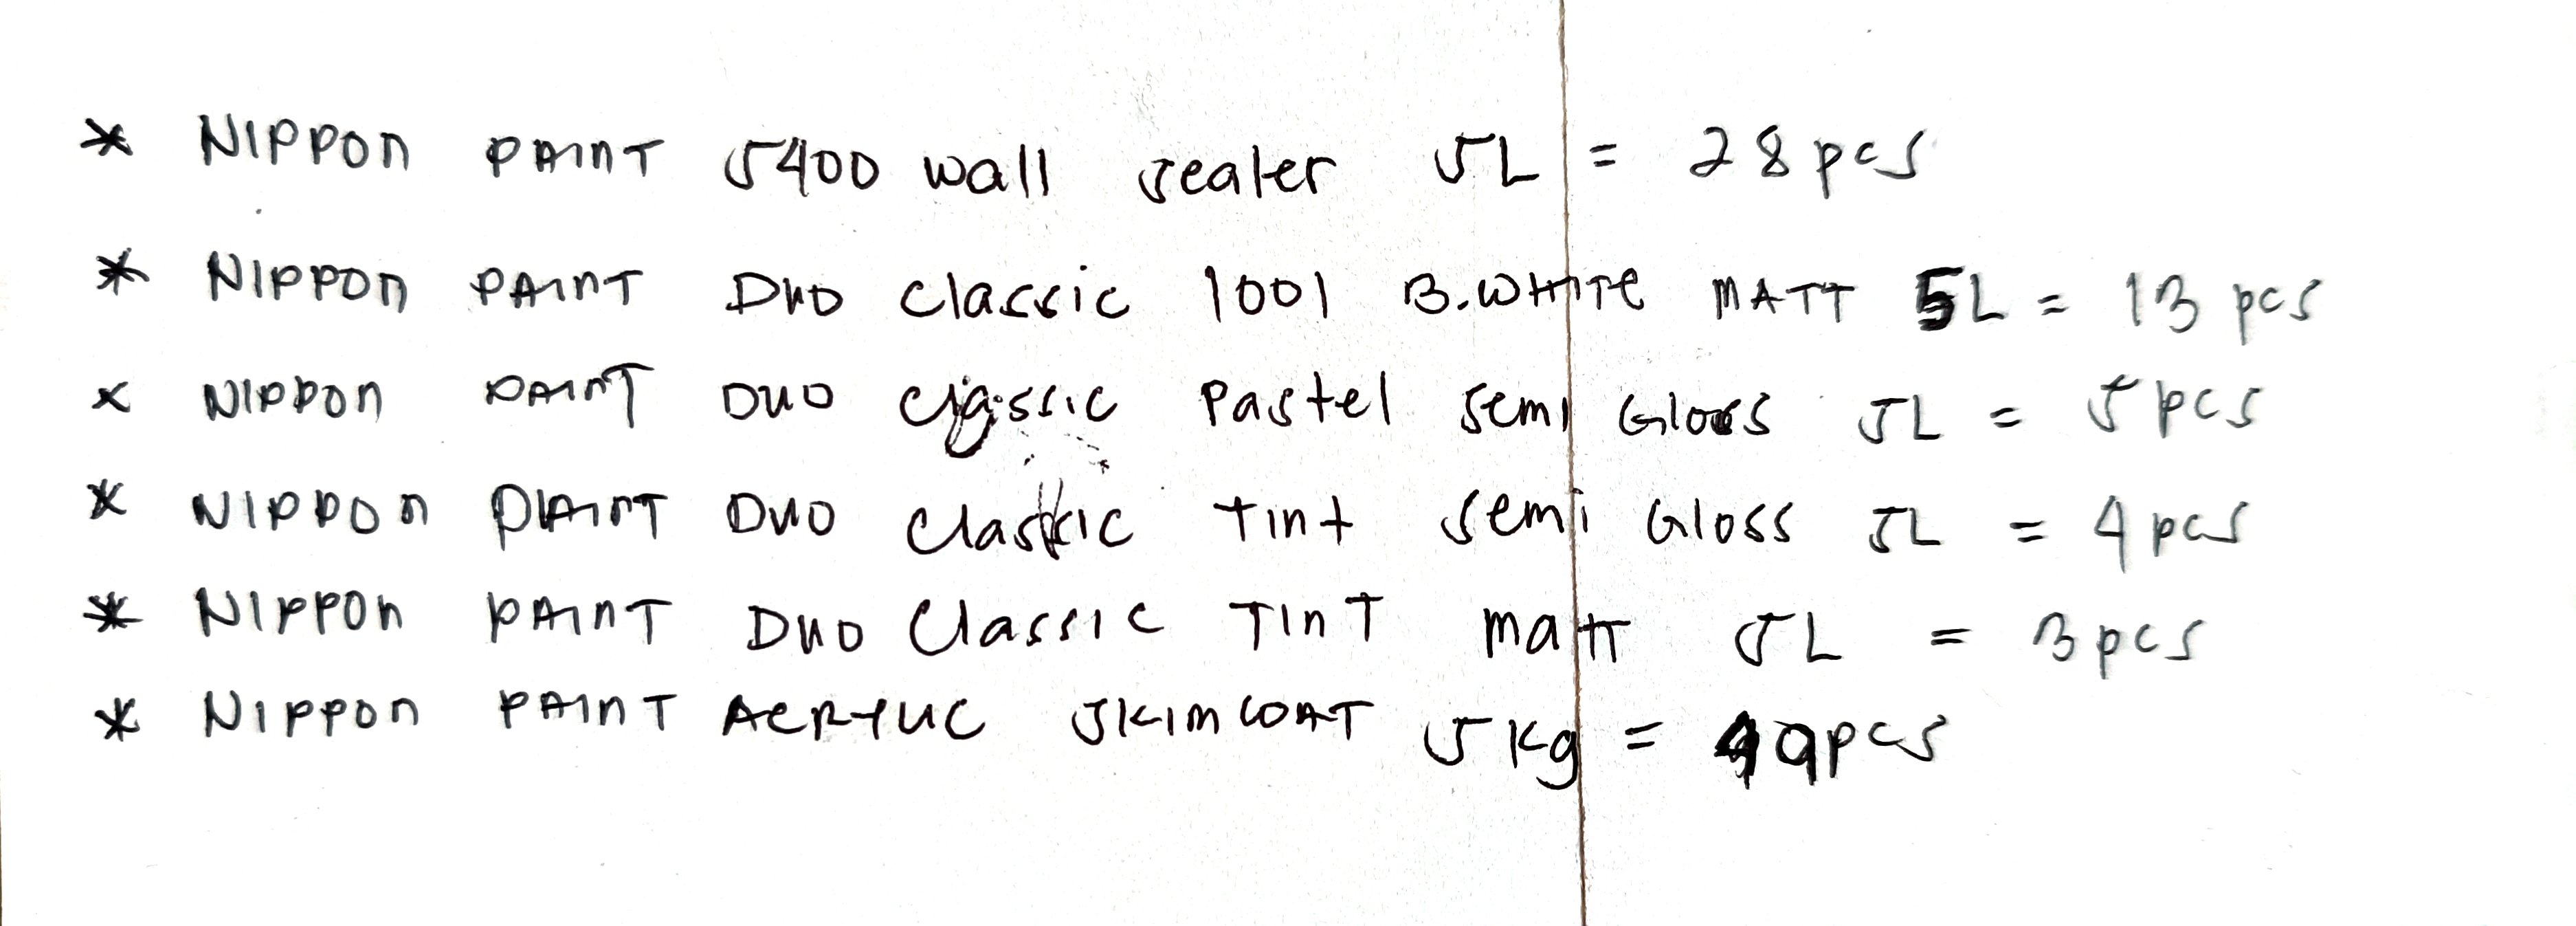 * NIPPON PAINT 5400 wall sealer 5L = 28 pcs
* NIPPON PAINT DUO classic 1001 B.WHITE MATT 5L = 13 pcs
* NIPPON PAINT DUO classic Pastel semi Gloss 5L = 5 pcs
* NIPPON PAINT DUO classic Tint semi Gloss 5L = 4 pcs
* NIPPON PAINT DUO Classic TINT matt 5L = 3 pcs
* NIPPON PAINT ACRYLIC SKIMCOAT 5 kg = 49pcs